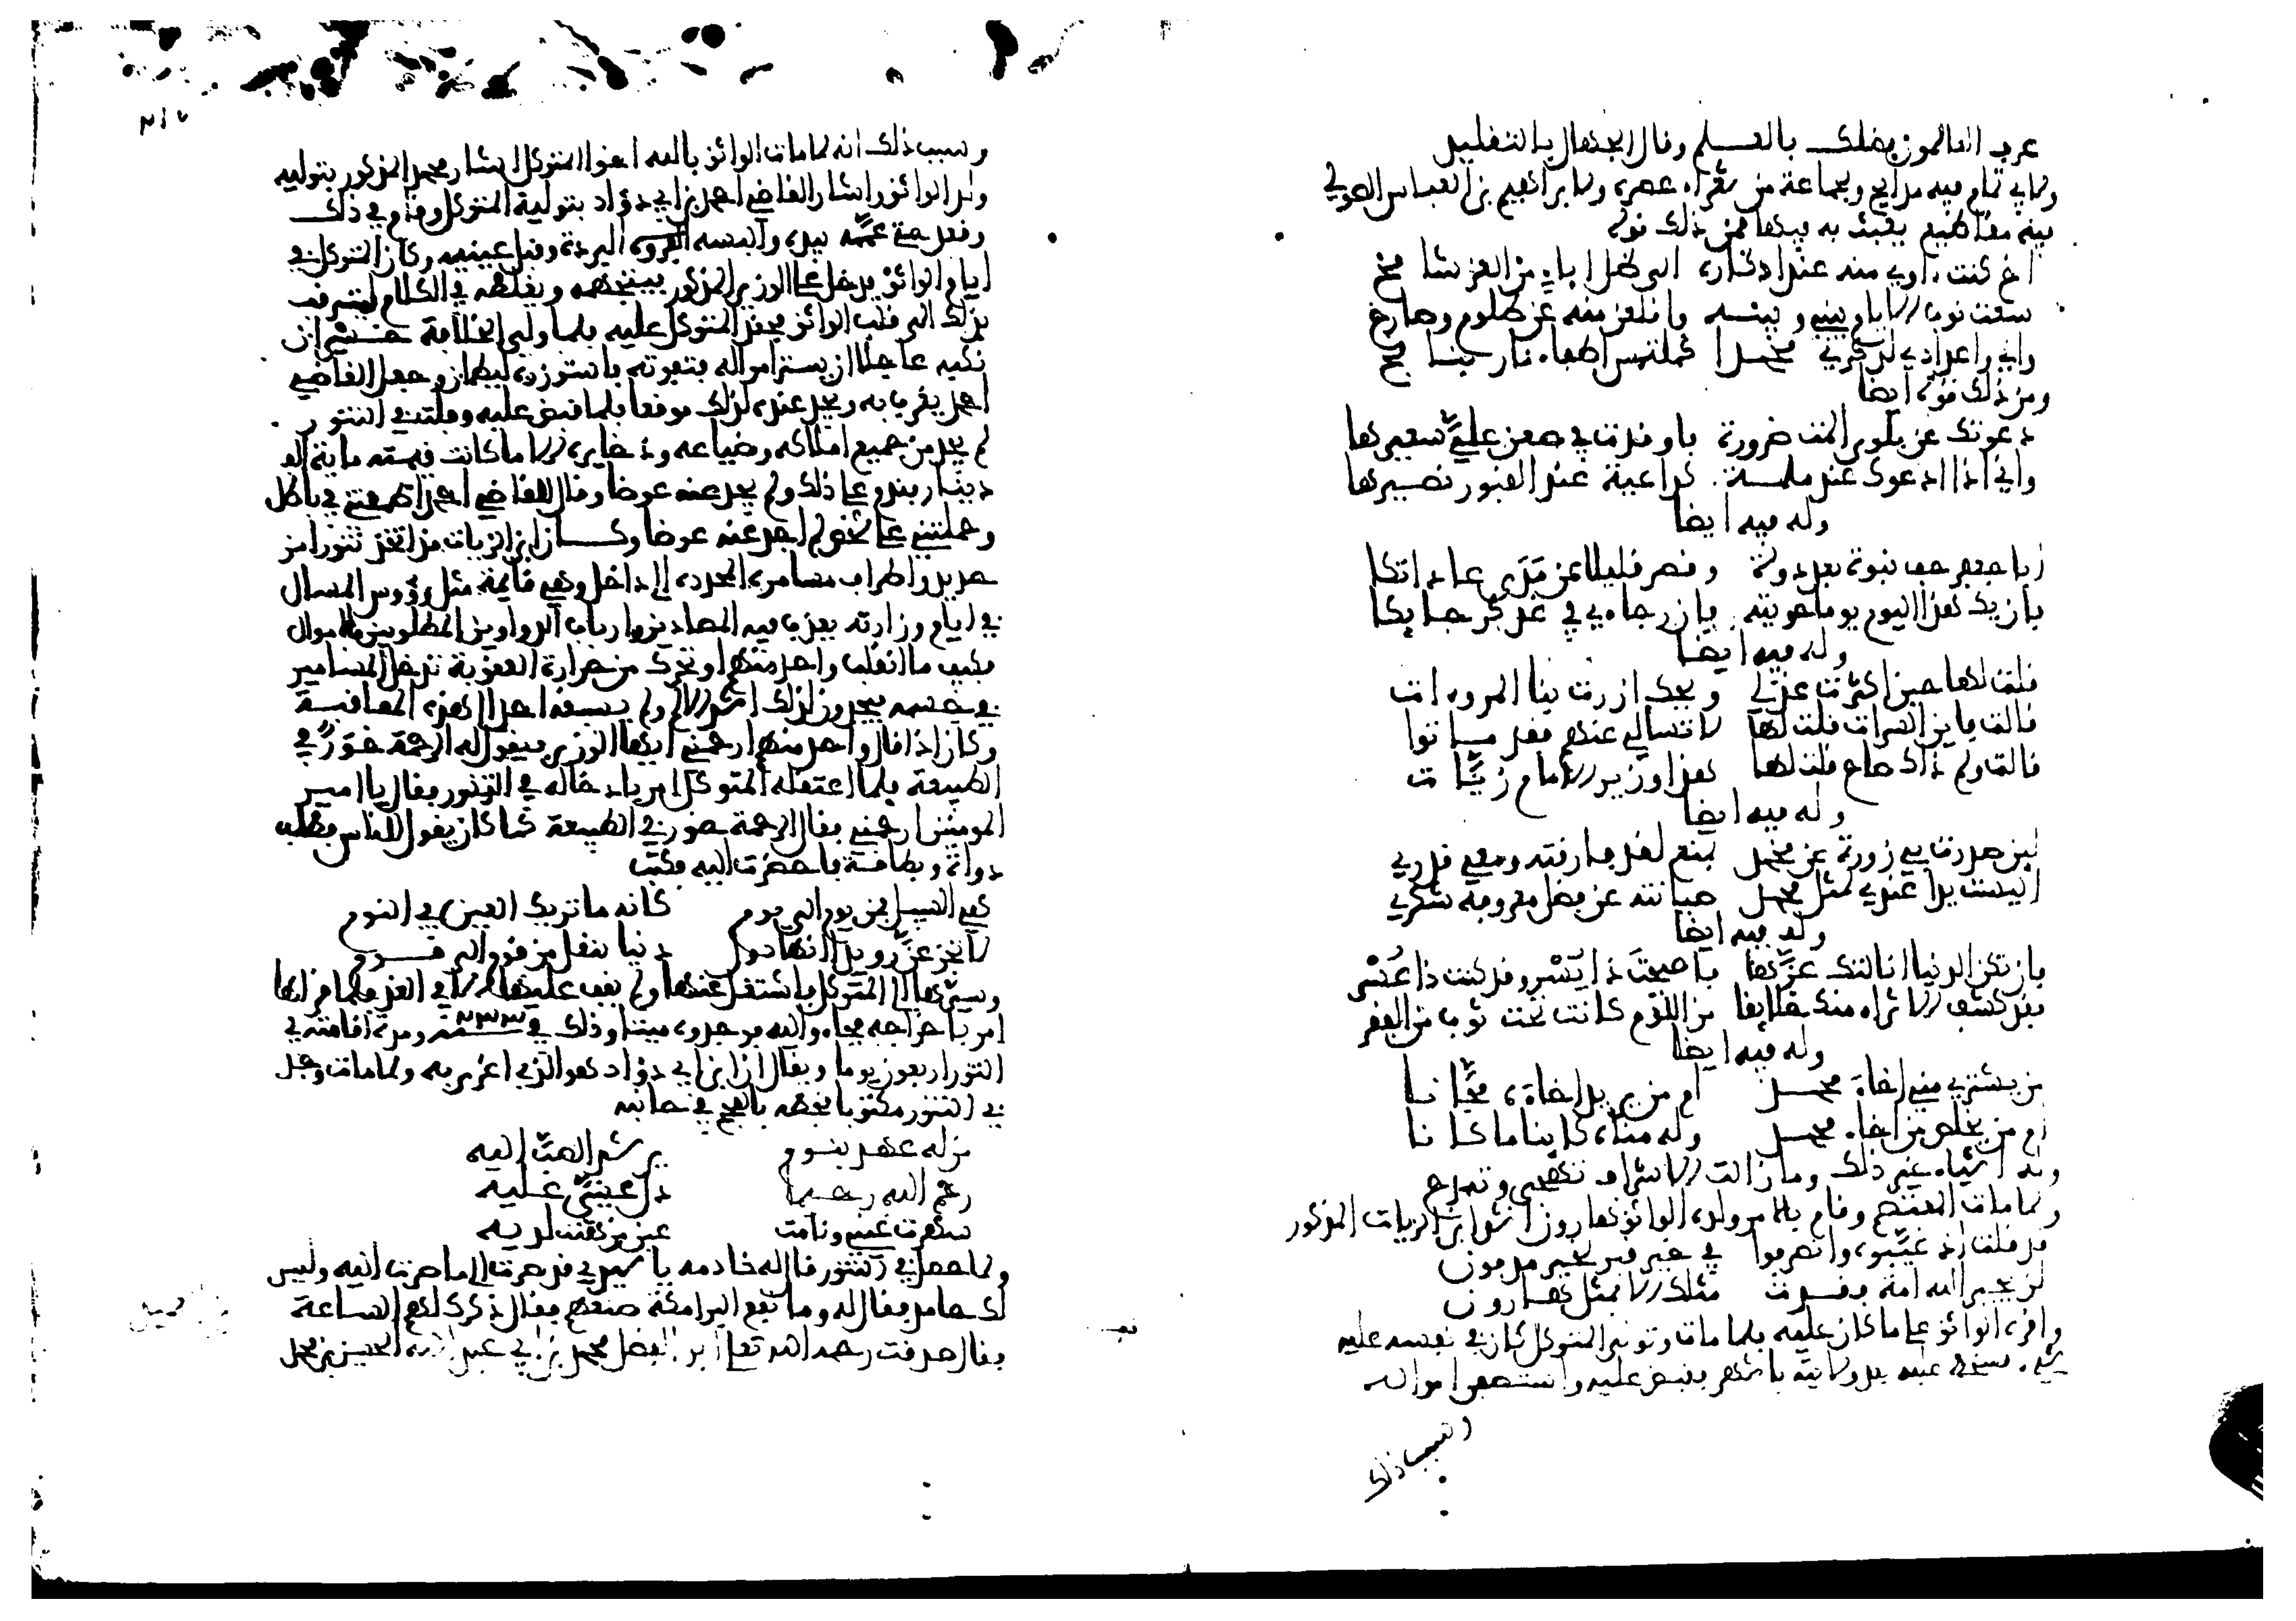 عرف العالمون فضلك بالعلم وقال الجهال بالتقليد
ولابي تمام فيه مدايح ولجماعة من شعراء عصره ولابراهيم بن العباس الصولي
فيه مقاطيع يعبث به فيها فمن ذلك قوله
اخ كنت اوي منه عند ادكاره الى ظل اباء من العز شامخ
سعت نوب الايام بيني وبينه واقلعن منه عن ظلوم وصارخ
واني واعدادي لدهري محمدا كملتمس اطفاء نار بنافخ
ومن ذلك قوله ايضا
دعوتك عن بلوى المت ضرورة فاوقدت في ضغن علي سعيرها
واني اذا ادعوك عند ملمة كداعية عند القبور نصيرها
وله فيه ايضا
ابا جعفر خف نبوة بعد دولة وقصر قليلا عن مدى غلوائكا
فان يك هذا اليوم يوما حويته فان رجاءي في غد كرجائكا
وله فيه ايضا
قلت لها حين اكثرت عذلي ويحك ازرت بنا المروءات
قالت فاين السراة قلت لها لا تسالي عنهم فقد ماتوا
قالت ولم ذاك صاح قلت لها هذا وزير الامام زيات
وله فيه ايضا
لين صدرت بي زورة عن محمد بمنع لقد فارقته ومعي قدري
اليست يدا عندي لمثل محمد صيانته عن فضل معروفه شكري
وله فيه ايضا
فان تكن الدنيا انالتك عزها فاصبحت ذا يسر وقد كنت ذا عسر
فقد كشف الاثراء منك خلايقا من اللؤم كانت تحت ثوب من الفقر
وله فيه ايضا
من يشتري مني اخاء محمد ام من يريد اخاءه مجانا
ام من يخلص من اخاء محمد وله مناه كاينا ما كانا
وله اشياء غير ذلك وما زالت الاشراف تهجى وتمدح
ولما مات المعتصم وقام بالامر ولده الواثق هارون انشد ابن الزيات المذكور
قد قلت اذ غيبوه وانصرفوا في خير قبر لخير مدفون
لن يجبر الله امة فقدت مثلك الا بمثل هارون
واقره الواثق على ما كان عليه فلما مات وتولى المتوكل كان في نفسه عليه
شيء فسخط عليه بعد ولايته باشهر فقبض عليه واستصفى امواله
وسبب ذلك
٢١٧
وسبب ذلك انه لما مات الواثق بالله اخو المتوكل اشار محمد المذكور بتولية
ولد الواثق واشار القاضي احمد بن ابي دؤاد بتولية المتوكل وقام في ذلك
وقعد حتى عممه بيده والبسه البردة وقبل عينيه وكان المتوكل في
ايام الواثق يدخل على الوزير المذكور فيتجهمه ويغلظ في الكلام ليتقرب
بذلك الى قلب الواثق فحقد المتوكل عليه فلما ولي الخلافة خشي ان
نكبه عاجلا ان يستر امواله فتفوته فاستوزره ليطمان وجعل القاضي
احمد يغريه به ويجد عنده لذلك موقعا فلما قبض عليه ومات في التنور
لم يجد من جميع املاكه وضياعه وذخايره الا ما كانت قيمته ماية الف
دينار فندم على ذلك ولم يجد عنه عوضا وقال للقاضي احمد اطمعتني في باطل
وحملتني على شخص لم اجد عنه عوضا وكان ابن الزيات قد اتخذ تنورا من
حديد واطراف مساميره المحددة الى داخل وهي قائمة مثل رؤوس المسال
في ايام وزارته يعذب فيه المصادرين وارباب الدواوين المطلوبين بالاموال
فكيف ما انقلب واحد منهم او تحرك من حرارة العقوبة تدخل المسامير
في جسمه فيجدون لذلك اشد الالم ولم يسبقه احد الى هذه المعاقبة
وكان اذا قال واحد منهم ارحمني ايها الوزير فيقول له الرحمة خور في
الطبيعة فلما اعتقله المتوكل امر بادخاله في التنور فقال يا امير
المومنين ارحمني فقال الرحمة خور في الطبيعة كما كان يقول للناس فطلب
دواة وبطاقة فاحضرت اليه فكتب
هي السبيل فمن يوم الى يوم كانه ما تريك العين في النوم
لا تجزعن رويدا انها دول دنيا تنقل من قوم الى قوم
وسيرها الى المتوكل فاشتغل عنها ولم يقف عليها الا في الغد فلما قراها
امر باخراجه فجاءوا اليه فوجدوه ميتا وذلك في سنة ٢٣٣ ومدة اقامته في
التنور اربعون يوما ويقال ان ابن ابي دؤاد هو الذي اغرى به ولما مات وجد
في التنور مكتوبا بخطه بالفحم في جانبه
من له عهد بنوم يرشد الصب اليه
رحم الله رحيما دل عيني عليه
سهرت عيني ونامت عين من هنت لديه
ولما جعل في التنور قال له خادمه يا سيدي قد صرت الى ما صرت اليه وليس
لك حامد فقال له وما نفع البرامكة صنعهم فقال ذكرك لهم الساعة
فقال صدقت رحمه الله تعالى ابو الفضل محمد بن ابي عبد الله الحسين بن محمد